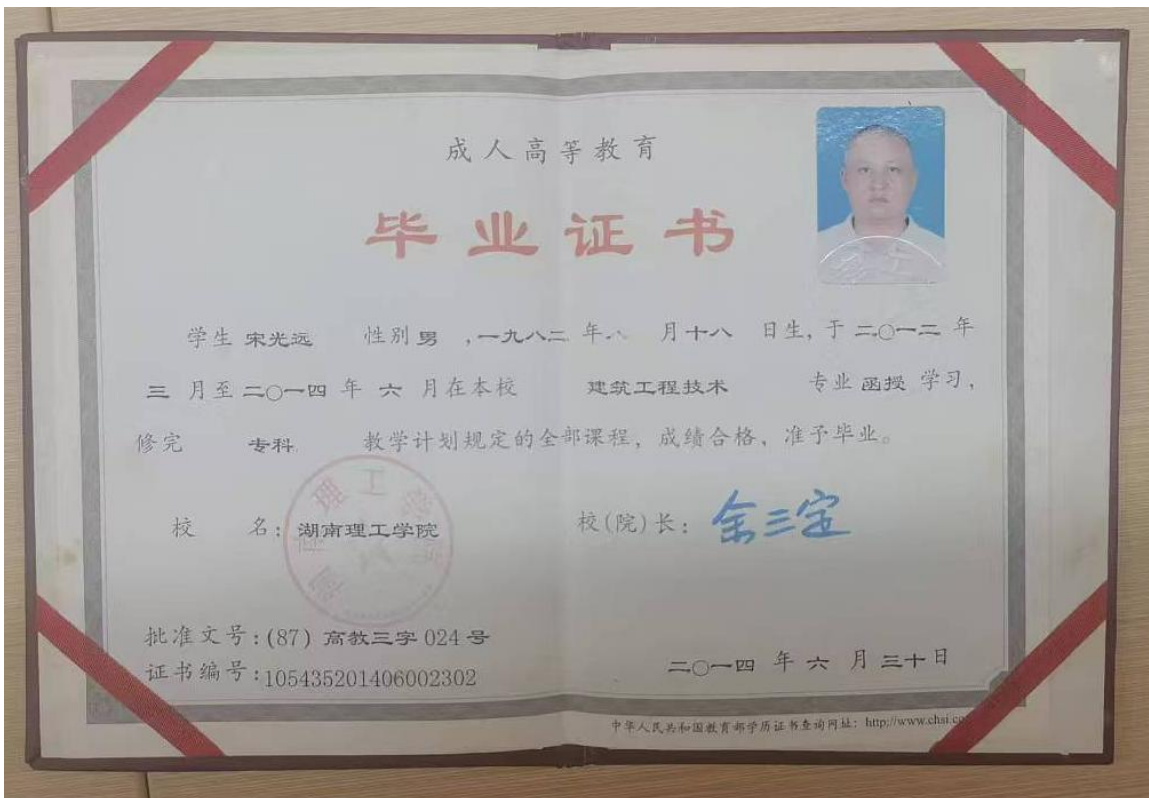 成人高等教育
毕业证书
学生 宋光远 性别 男 ,一九八二 年八 月十八 日生, 于 二〇一二 年
三 月至 二〇一四 年 六 月在本校 建筑工程技术 专业 函授 学习,
修完 专科 教学计划规定的全部课程, 成绩合格, 准予毕业。
校 名: 湖南理工学院 校(院)长: 余三定
批准文号:(87) 高教三字 024 号
证书编号:105435201406002302
二〇一四 年 六 月 三十日
中华人民共和国教育部学历证书查询网址: http://www.chsi.co